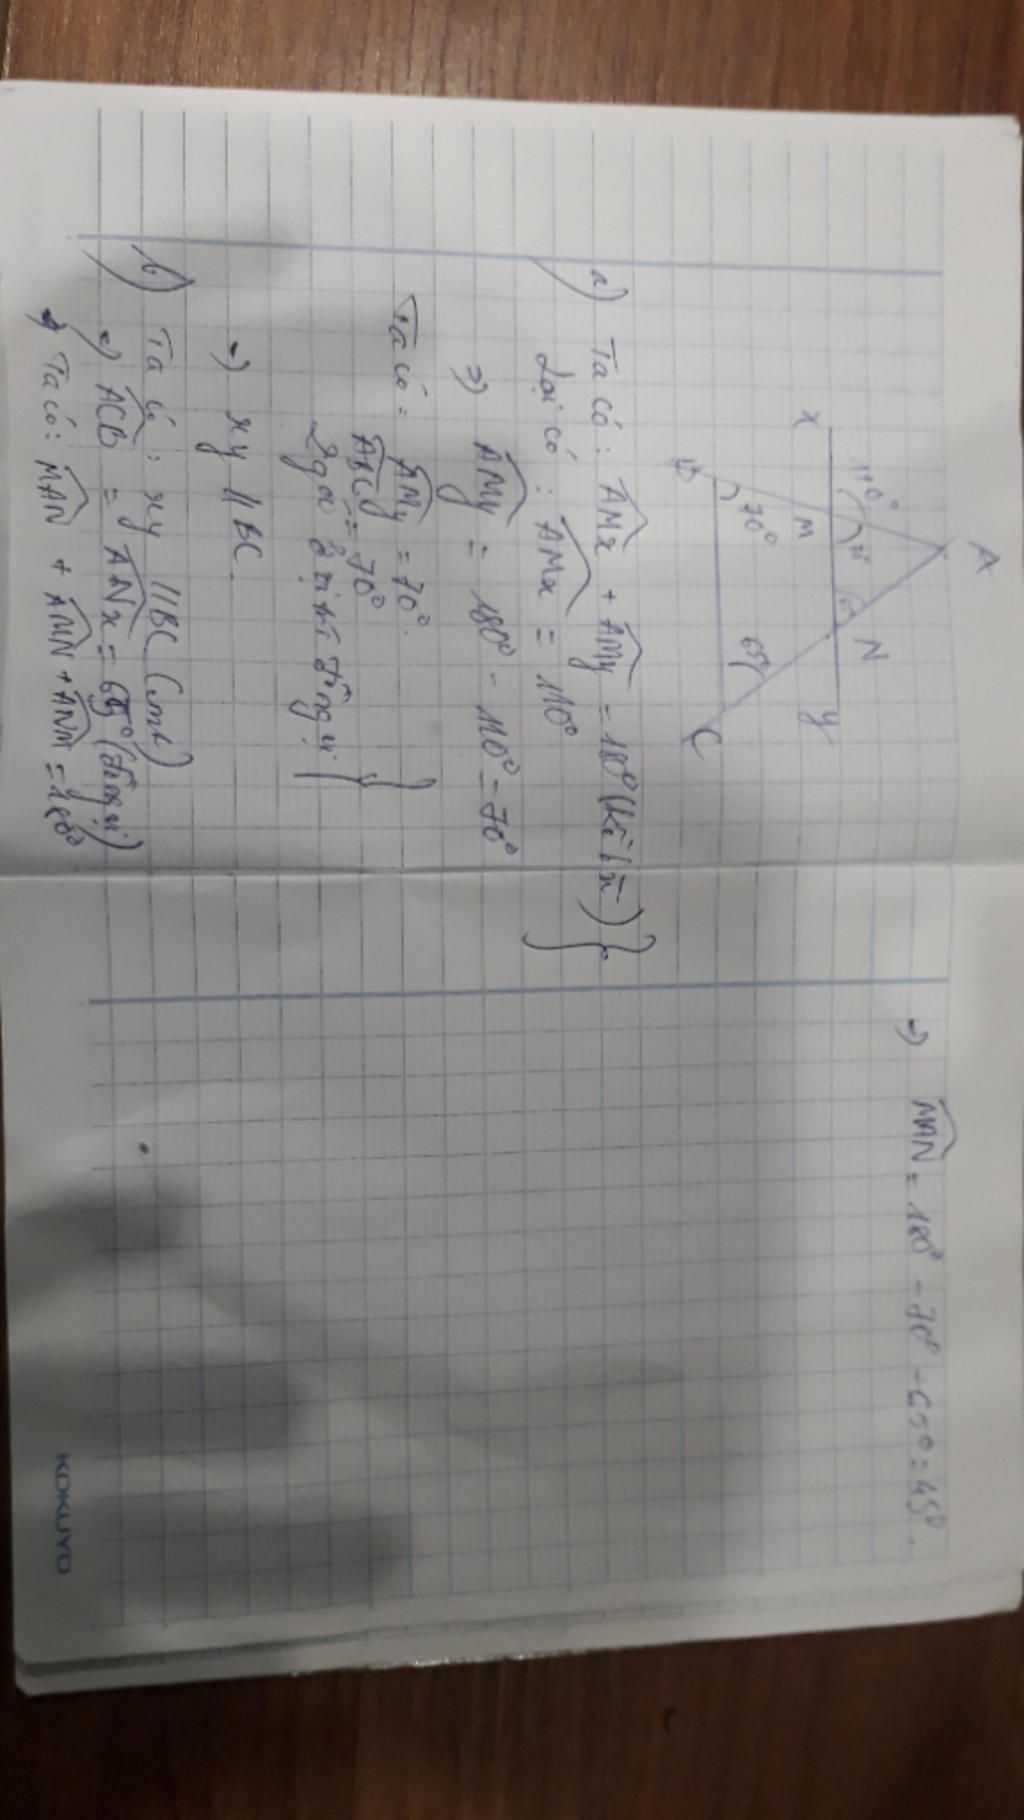 A
x
110°
M
70°
N
y
B
70°
65°
C
a) Ta có: AMx + AMy = 180° (kề bù)
Lại có: AMx = 110°
=> AMy = 180° - 110° = 70°
Ta có: AMy = 70°
ABC = 70°
=> xy // BC.
b) Ta có: xy // BC (cmt)
=> ACB = ANx = 65° (đồng vị)
Ta có: MAN + AMN + ANM = 180°
=> MAN = 180° - 70° - 65° = 45°.
KOKUYO